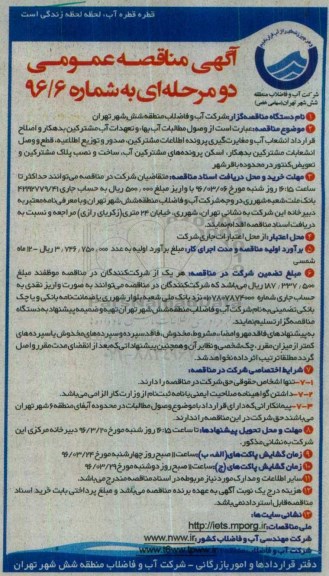 قطره قطره آب، لحظه لحظه زندگی است
شرکت آب و فاضلاب منطقه
شش شهر تهران (سهامی خاص)
آگهی مناقصه عمومی
دو مرحله‌ای به شماره ۹۶/۶
۱ نام دستگاه مناقصه‌گزار: شرکت آب و فاضلاب منطقه شش شهر تهران
۲ موضوع مناقصه: عبارت است از وصول مطالبات آب بها، و تعهدات آب مشترکین بدهکار و اصلاح
قرارداد انشعاب آب و مغایرت‌گیری پرونده اطلاعات مشترکین، صدور و توزیع اطلاعیه، قطع و وصل
انشعابات مشترکین بدهکار، اسکن پرونده‌های مشترکین آب، ساخت و نصب پلاک مشترکین و
تعویض کنتور در محدوده باقرشهر
۳ مهلت خرید و محل دریافت اسناد مناقصه: متقاضیان شرکت در مناقصه می‌توانند حداکثر تا
ساعت ۱۶:۱۵ روز شنبه مورخ ۹۶/۰۳/۰۶ با واریز مبلغ ۵۰۰,۰۰۰ ریال به حساب جاری
بانک ملت شعبه شهرری در وجه شرکت آب و فاضلاب منطقه شش شهر تهران و با معرفی‌نامه معتبر به
دبیرخانه این شرکت به نشانی تهران، شهرری، خیابان ۲۴ متری (زکریای رازی) مراجعه و نسبت به
دریافت اسناد مناقصه اقدام نمایند.
۴ محل اعتبار: از محل اعتبارات جاری شرکت
۵ برآورد اولیه مناقصه و مدت اجرای کار: مبلغ برآورد اولیه به عدد ۳,۷۴۶,۷۵۰,۰۰۰ ریال - ۱۲ ماه
شمسی
۶ مبلغ تضمین شرکت در مناقصه: هر یک از شرکت‌کنندگان در مناقصه موظفند مبلغ
۱۸۷,۳۳۷,۵۰۰ ریال می‌باشد که شرکت‌کنندگان در مناقصه می‌توانند به صورت واریز نقدی به
حساب جاری شماره نزد بانک ملی شعبه بلوار شهرری یا ضمانت‌نامه بانکی و یا چک
بانکی تضمینی به نام شرکت آب و فاضلاب منطقه شش شهر تهران تهیه و ضمیمه پیشنهاد به دستگاه
مناقصه‌گزار تسلیم نمایند.
به پیشنهادهای فاقد مهر و امضاء، مشروط، مخدوش، فاقد سپرده و سپرده‌های مخدوش یا سپرده‌های
کمتر از میزان مقرر، چک شخصی و نظایر آن و همچنین پیشنهاداتی که بعد از انقضای مدت مقرر واصل
گردد مطلقا ترتیب اثر داده نخواهد شد.
۷ شرایط اختصاصی شرکت در مناقصه:
۷-۱- تنها اشخاص حقوقی حق شرکت در مناقصه را دارند.
۷-۲- داشتن گواهینامه صلاحیت ایمنی یا نامه ثبت‌نام از وزارت کار الزامی می‌باشد.
۷-۳- پیمانکارانی که دارای قرارداد با موضوع وصول مطالبات در محدوده آبفای منطقه ۶ شهر تهران
می‌باشند حق شرکت در این مناقصه را ندارند.
۸ مهلت و محل تحویل پیشنهادها: تا ساعت ۱۶:۱۵ روز شنبه مورخ ۹۶/۳/۲۰ دبیرخانه مرکزی این
شرکت به نشانی مذکور.
۹ زمان گشایش پاکت‌های (الف، ب) ساعت ۱۱ صبح روز چهارشنبه مورخ ۹۶/۰۳/۲۴
۱۰ زمان گشایش پاکت‌های (ج) ساعت ۱۱ صبح روز دوشنبه مورخ ۹۶/۰۳/۲۹
۱۱ سایر اطلاعات و مدارک مورد نیاز مربوطه در اسناد مناقصه مندرج می‌باشد.
۱۲ هزینه درج یک نوبت آگهی به عهده برنده مناقصه می‌باشد و مبلغ پرداختی بابت خرید اسناد
مناقصه قابل استرداد نمی‌باشد.
۱۳ نشانی سایت‌ها:
ملی مناقصات: http://iets.mporg.ir
شرکت مهندسی آب و فاضلاب کشور: www.nww.ir
شرکت آب و فاضلاب منطقه شش شهر تهران:
دفتر قراردادها و امور بازرگانی - شرکت آب و فاضلاب منطقه شش شهر تهران